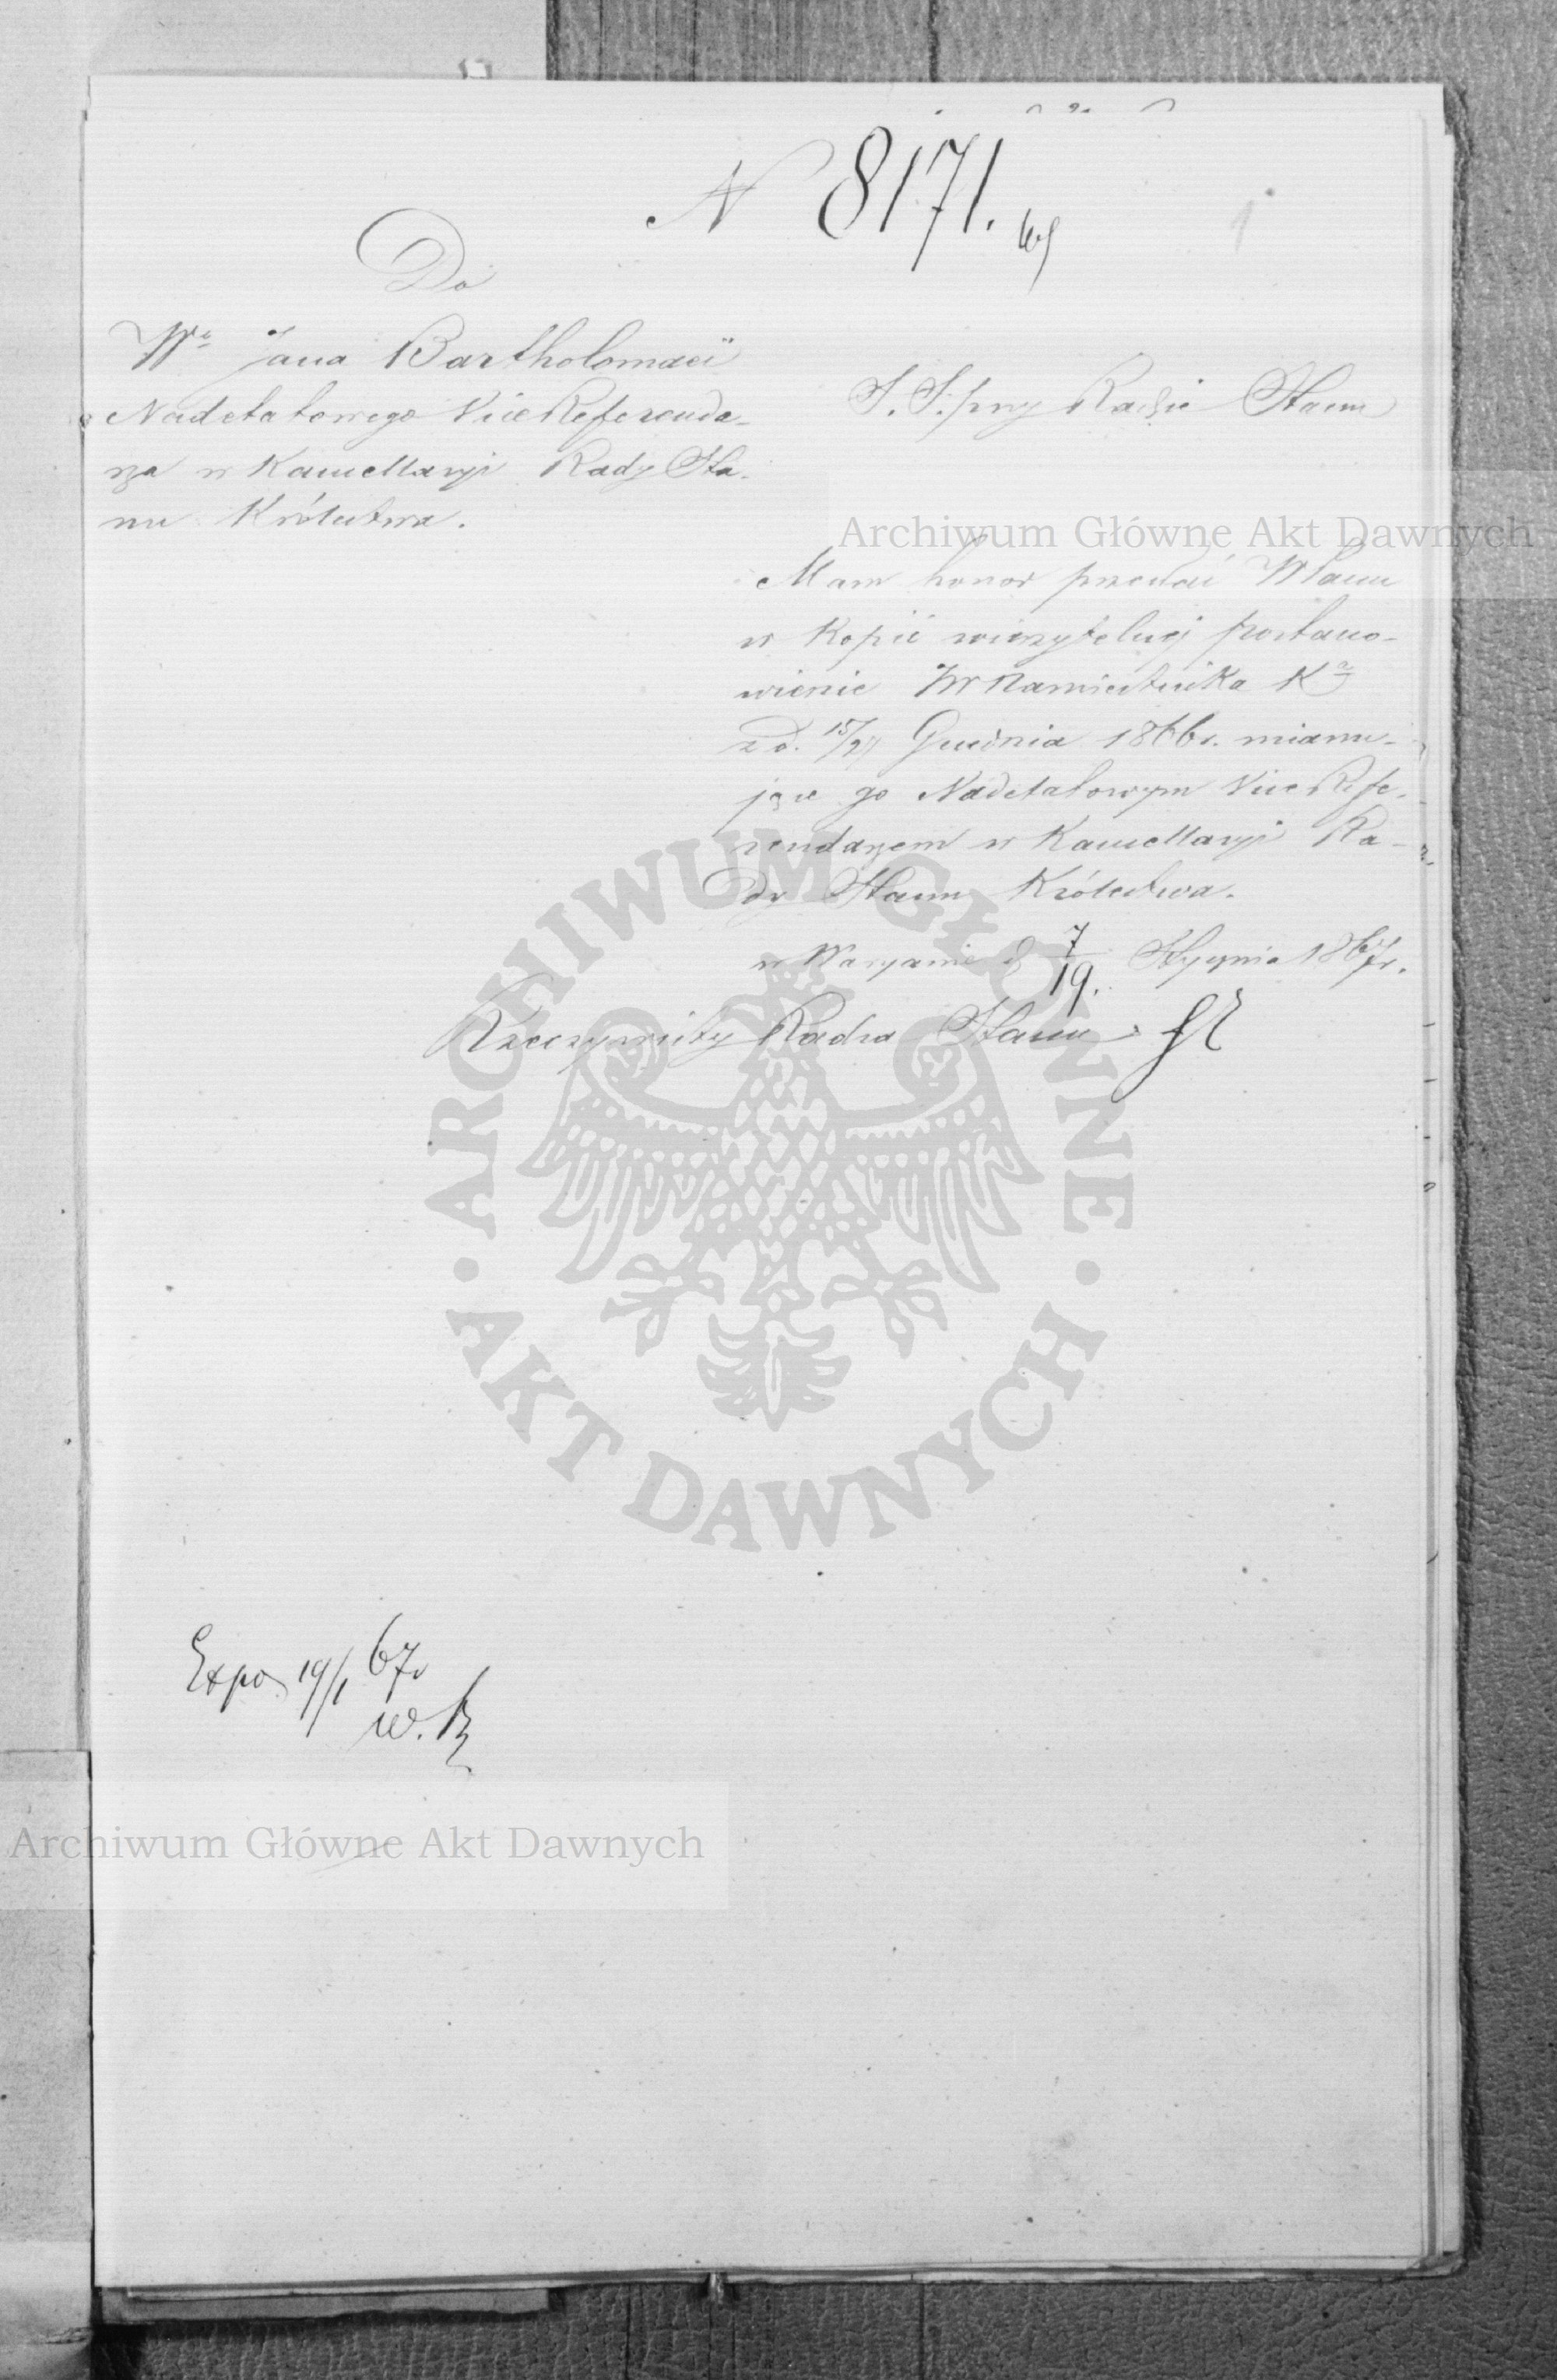 N 8171.
1
Do
Wo Jana Bartholomaei
Nadetatowego Vice Referenda-
rza w Kancellaryi Rady Sta-
nu Królestwa.
S. S. przy Radzie Stanu
Archiwum Główne Akt Dawnych
Mam honor przesłać WPanu
w Kopii wierzytelnej postano-
wienie JW Namiestnika Kr
z d. 15/27 Grudnia 1866 r. mianu-
jące go Nadetatowym Vice Refe-
rendarzem w Kancellaryi Ra-
dy Stanu Królestwa.
w Warszawie d 7/19. Stycznia 1867 r.
Rzeczywisty Radca Stanu
ARCHIWUM GŁÓWNE • AKT DAWNYCH •
Expo 19/1 67r
Archiwum Główne Akt Dawnych